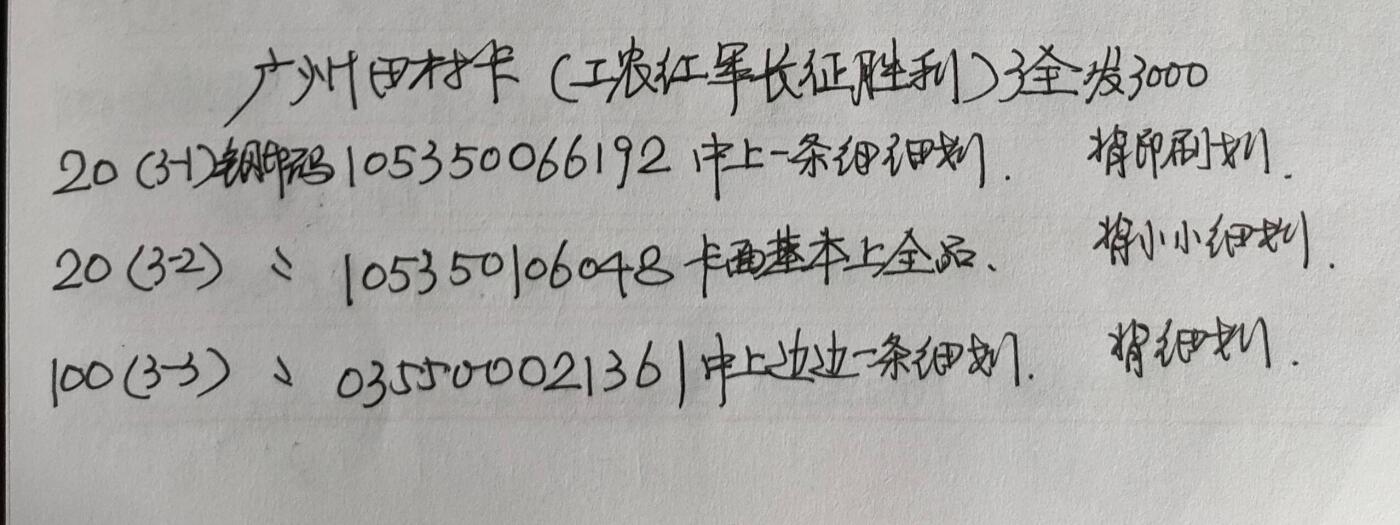 广州田村卡（工农红军长征胜利）3全发3000
20(3-1)钢印码105350066192中上一条细细划. 背印刷划.
20(3-2) 〃 105350106048卡面基本上全品、 背小小细划.
100(3-3) 〃 035500021361中上边边一条细划. 背细划.